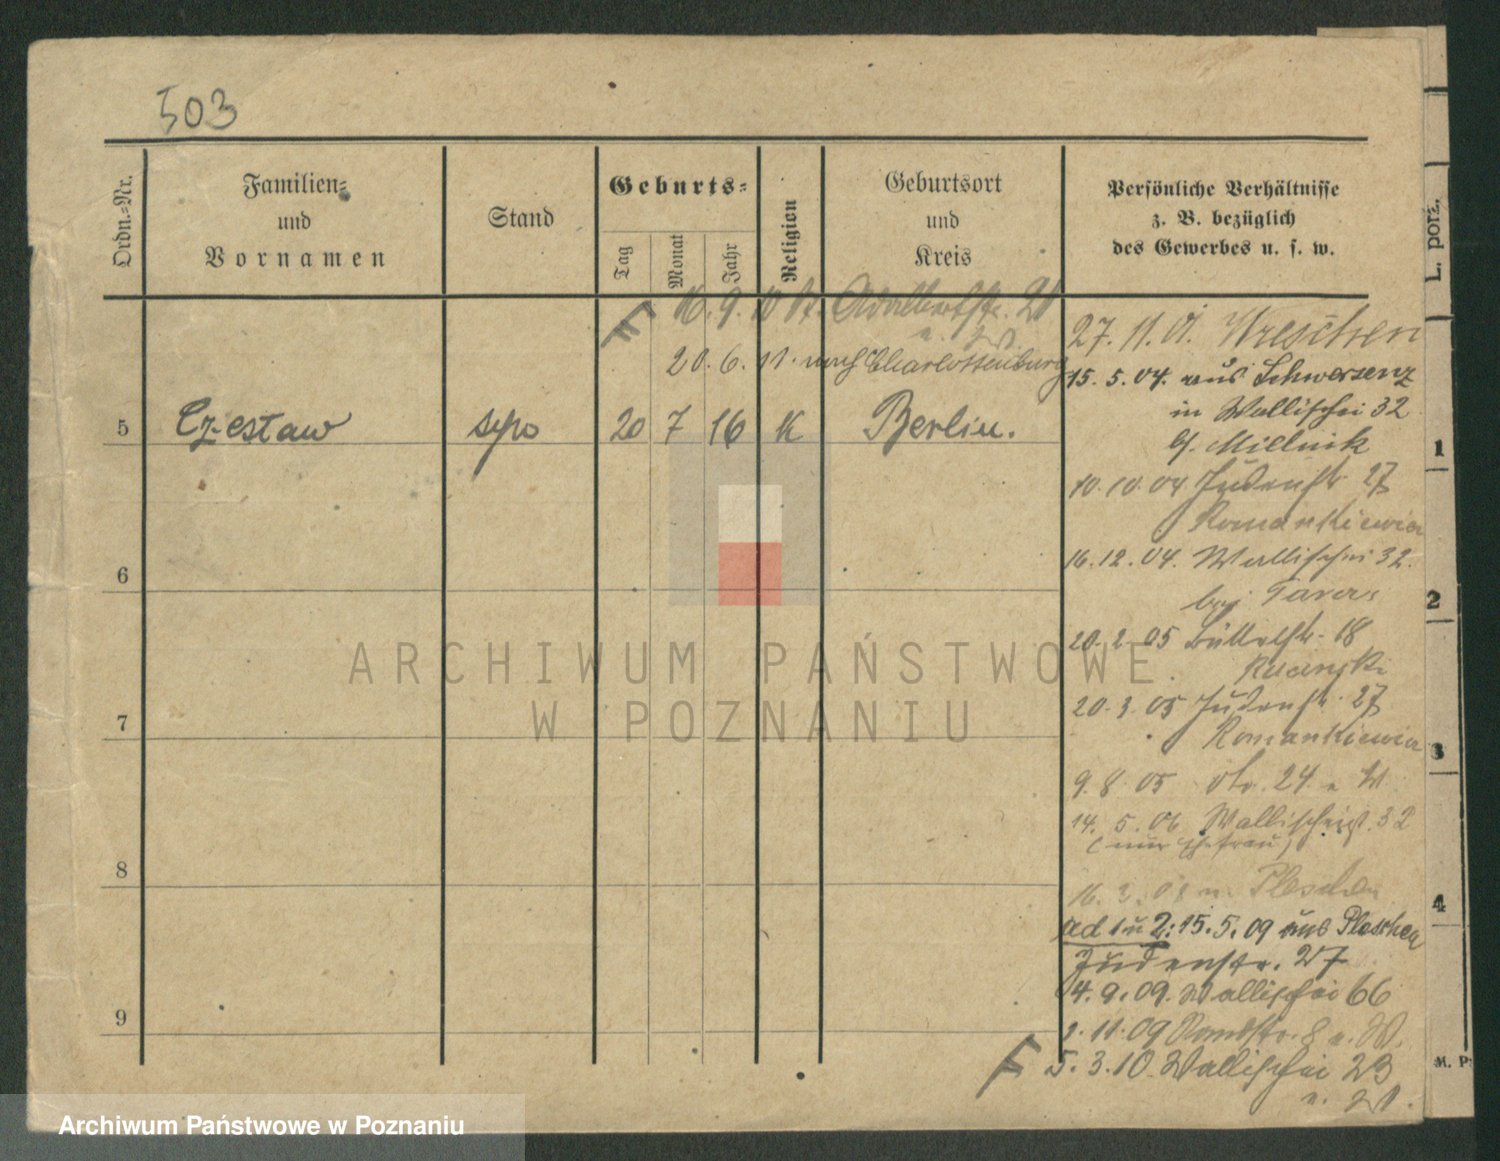 503
Ordn.-Nr.
Familien-
und
Vornamen
Stand
Geburts-
Tag
Monat
Jahr
Religion
Geburtsort
und
Kreis
Persönliche Verhältnisse
z. B. bezüglich
des Gewerbes u. s. w.
16. 9. 10 St. Adalbertstr. 21
u. W.
20. 6. 11. nach Charlottenburg
5 Czesław 20 7 16 K Berlin.
6
7
8
9
27. 11. 01. Wreschen
15. 5. 04. aus Schwersenz
in Wallischei 32
b/ Mielnik
10. 10. 04 Judenstr 27
Romankiewicz
16. 12. 04. Wallischei 32.
bei
20. 2. 05 Büttelstr. 18
Rucinski
20. 3. 05 Judenstr. 27
Romankiewicz
9. 8. 05 24 u W.
14. 5. 06 Wallischei 32
(nur Ehefrau)
16. 3. 08 n. Pleschen
ad 1 u 2: 15. 5. 09 aus Pleschen
Judenstr. 27
4. 9. 09. Wallischei 66
2. 11. 09 8 u. W.
5. 3. 10. Wallischei 23
u. W.
L. porz.
1
2
3
4
M. P.
ARCHIWUM PAŃSTWOWE
W POZNANIU
Archiwum Państwowe w Poznaniu